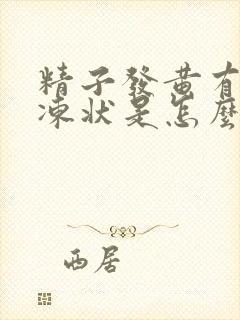 精子發黄有
凍狀是怎麼
西居